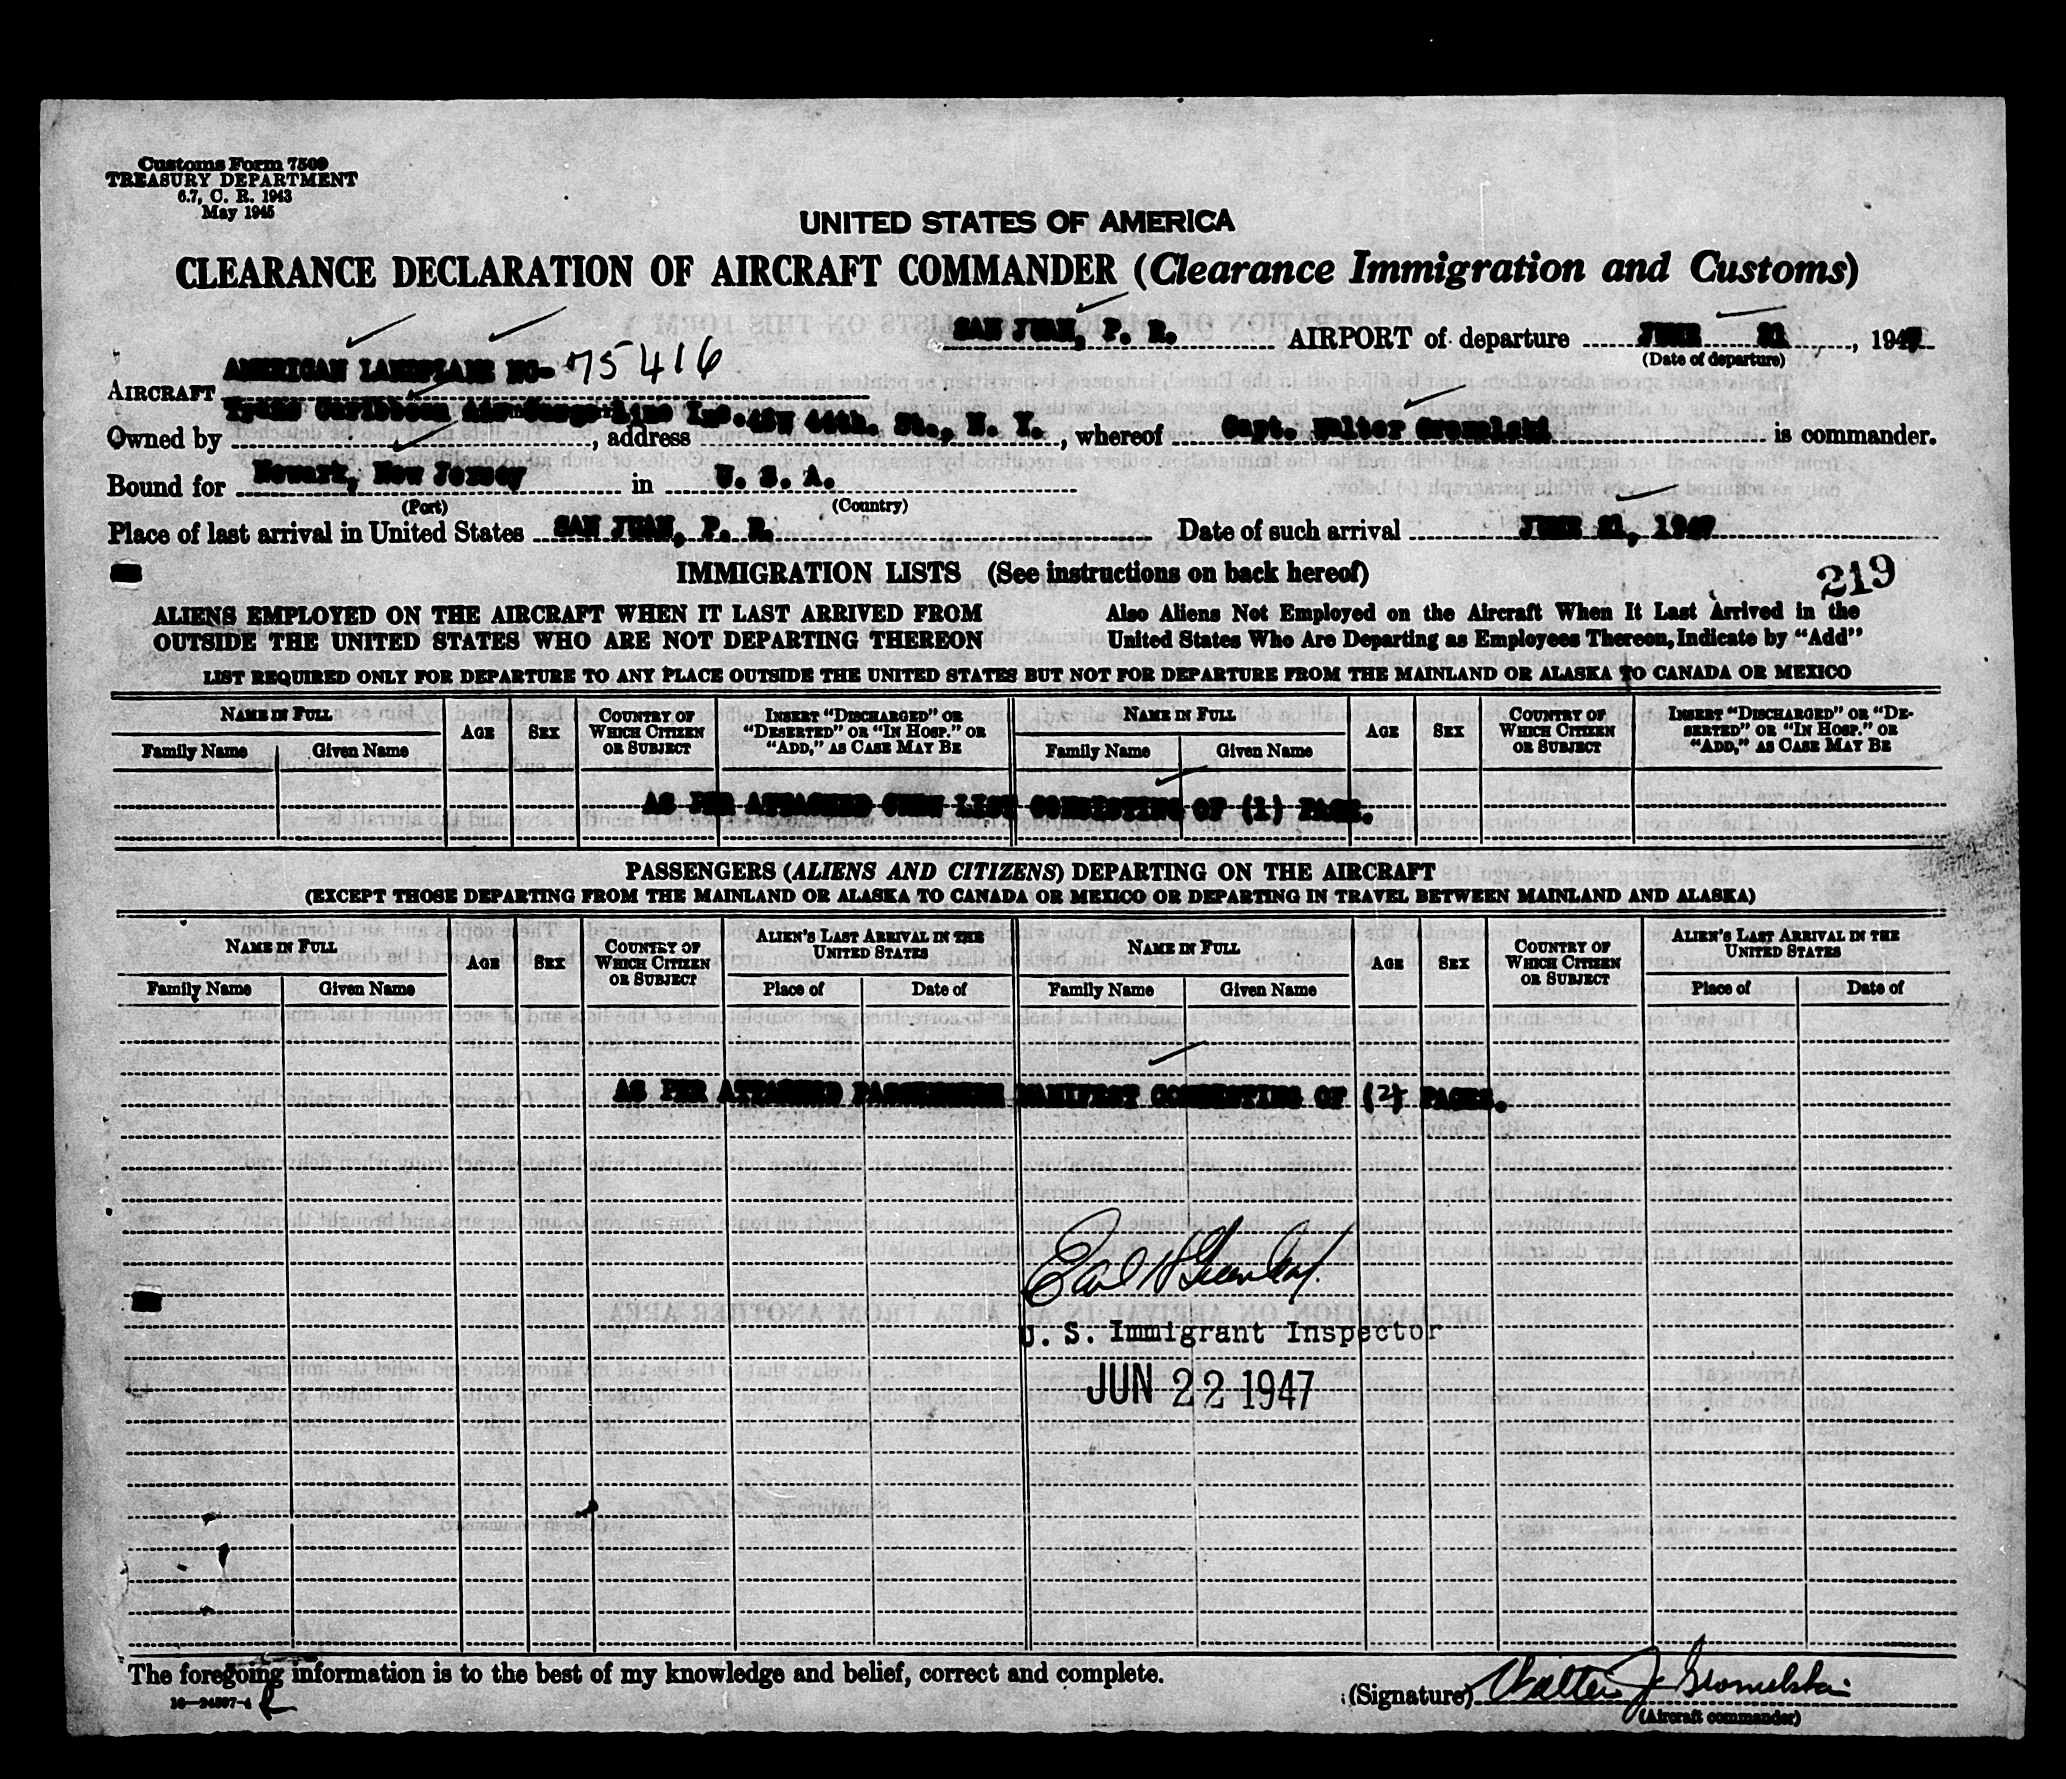 Customs Form 7509
TREASURY DEPARTMENT
6.7, C. R. 1943
May 1945
UNITED STATES OF AMERICA
CLEARANCE DECLARATION OF AIRCRAFT COMMANDER (Clearance Immigration and Customs)
SAN JUAN, P. R. AIRPORT of departure JUNE 21, 1947
(Date of departure)
AIRCRAFT AMERICAN LANDPLANE NO- 75416
Owned by Trans Caribbean Air-Cargo-Line Inc., address 44th. St., N. Y., whereof Capt. Walter Gromelski is commander.
Bound for Newark, New Jersey in U. S. A.
(Port) (Country)
Place of last arrival in United States SAN JUAN, P. R. Date of such arrival JUNE 21, 1947
IMMIGRATION LISTS (See instructions on back hereof)
219
ALIENS EMPLOYED ON THE AIRCRAFT WHEN IT LAST ARRIVED FROM OUTSIDE THE UNITED STATES WHO ARE NOT DEPARTING THEREON
Also Aliens Not Employed on the Aircraft When It Last Arrived in the United States Who Are Departing as Employees Thereon, Indicate by "Add"
LIST REQUIRED ONLY FOR DEPARTURE TO ANY PLACE OUTSIDE THE UNITED STATES BUT NOT FOR DEPARTURE FROM THE MAINLAND OR ALASKA TO CANADA OR MEXICO
NAME IN FULL AGE SEX COUNTRY OF WHICH CITIZEN OR SUBJECT INSERT "DISCHARGED" OR "DESERTED" OR "IN HOSP." OR "ADD," AS CASE MAY BE NAME IN FULL AGE SEX COUNTRY OF WHICH CITIZEN OR SUBJECT INSERT "DISCHARGED" OR "DE-SERTED" OR "IN HOSP." OR "ADD," AS CASE MAY BE
Family Name Given Name Family Name Given Name
AS PER ATTACHED CREW LIST CONSISTING OF (1) PAGE.
PASSENGERS (ALIENS AND CITIZENS) DEPARTING ON THE AIRCRAFT
(EXCEPT THOSE DEPARTING FROM THE MAINLAND OR ALASKA TO CANADA OR MEXICO OR DEPARTING IN TRAVEL BETWEEN MAINLAND AND ALASKA)
NAME IN FULL AGE SEX COUNTRY OF WHICH CITIZEN OR SUBJECT ALIEN'S LAST ARRIVAL IN THE UNITED STATES NAME IN FULL AGE SEX COUNTRY OF WHICH CITIZEN OR SUBJECT ALIEN'S LAST ARRIVAL IN THE UNITED STATES
Family Name Given Name Place of Date of Family Name Given Name Place of Date of
AS PER ATTACHED PASSENGERS MANIFEST CONSISTING OF (2) PAGES.
Earl H
U. S. Immigrant Inspector
JUN 22 1947
The foregoing information is to the best of my knowledge and belief, correct and complete.
(Signature) Walter J Gromelski
(Aircraft commander)
16—24597-1